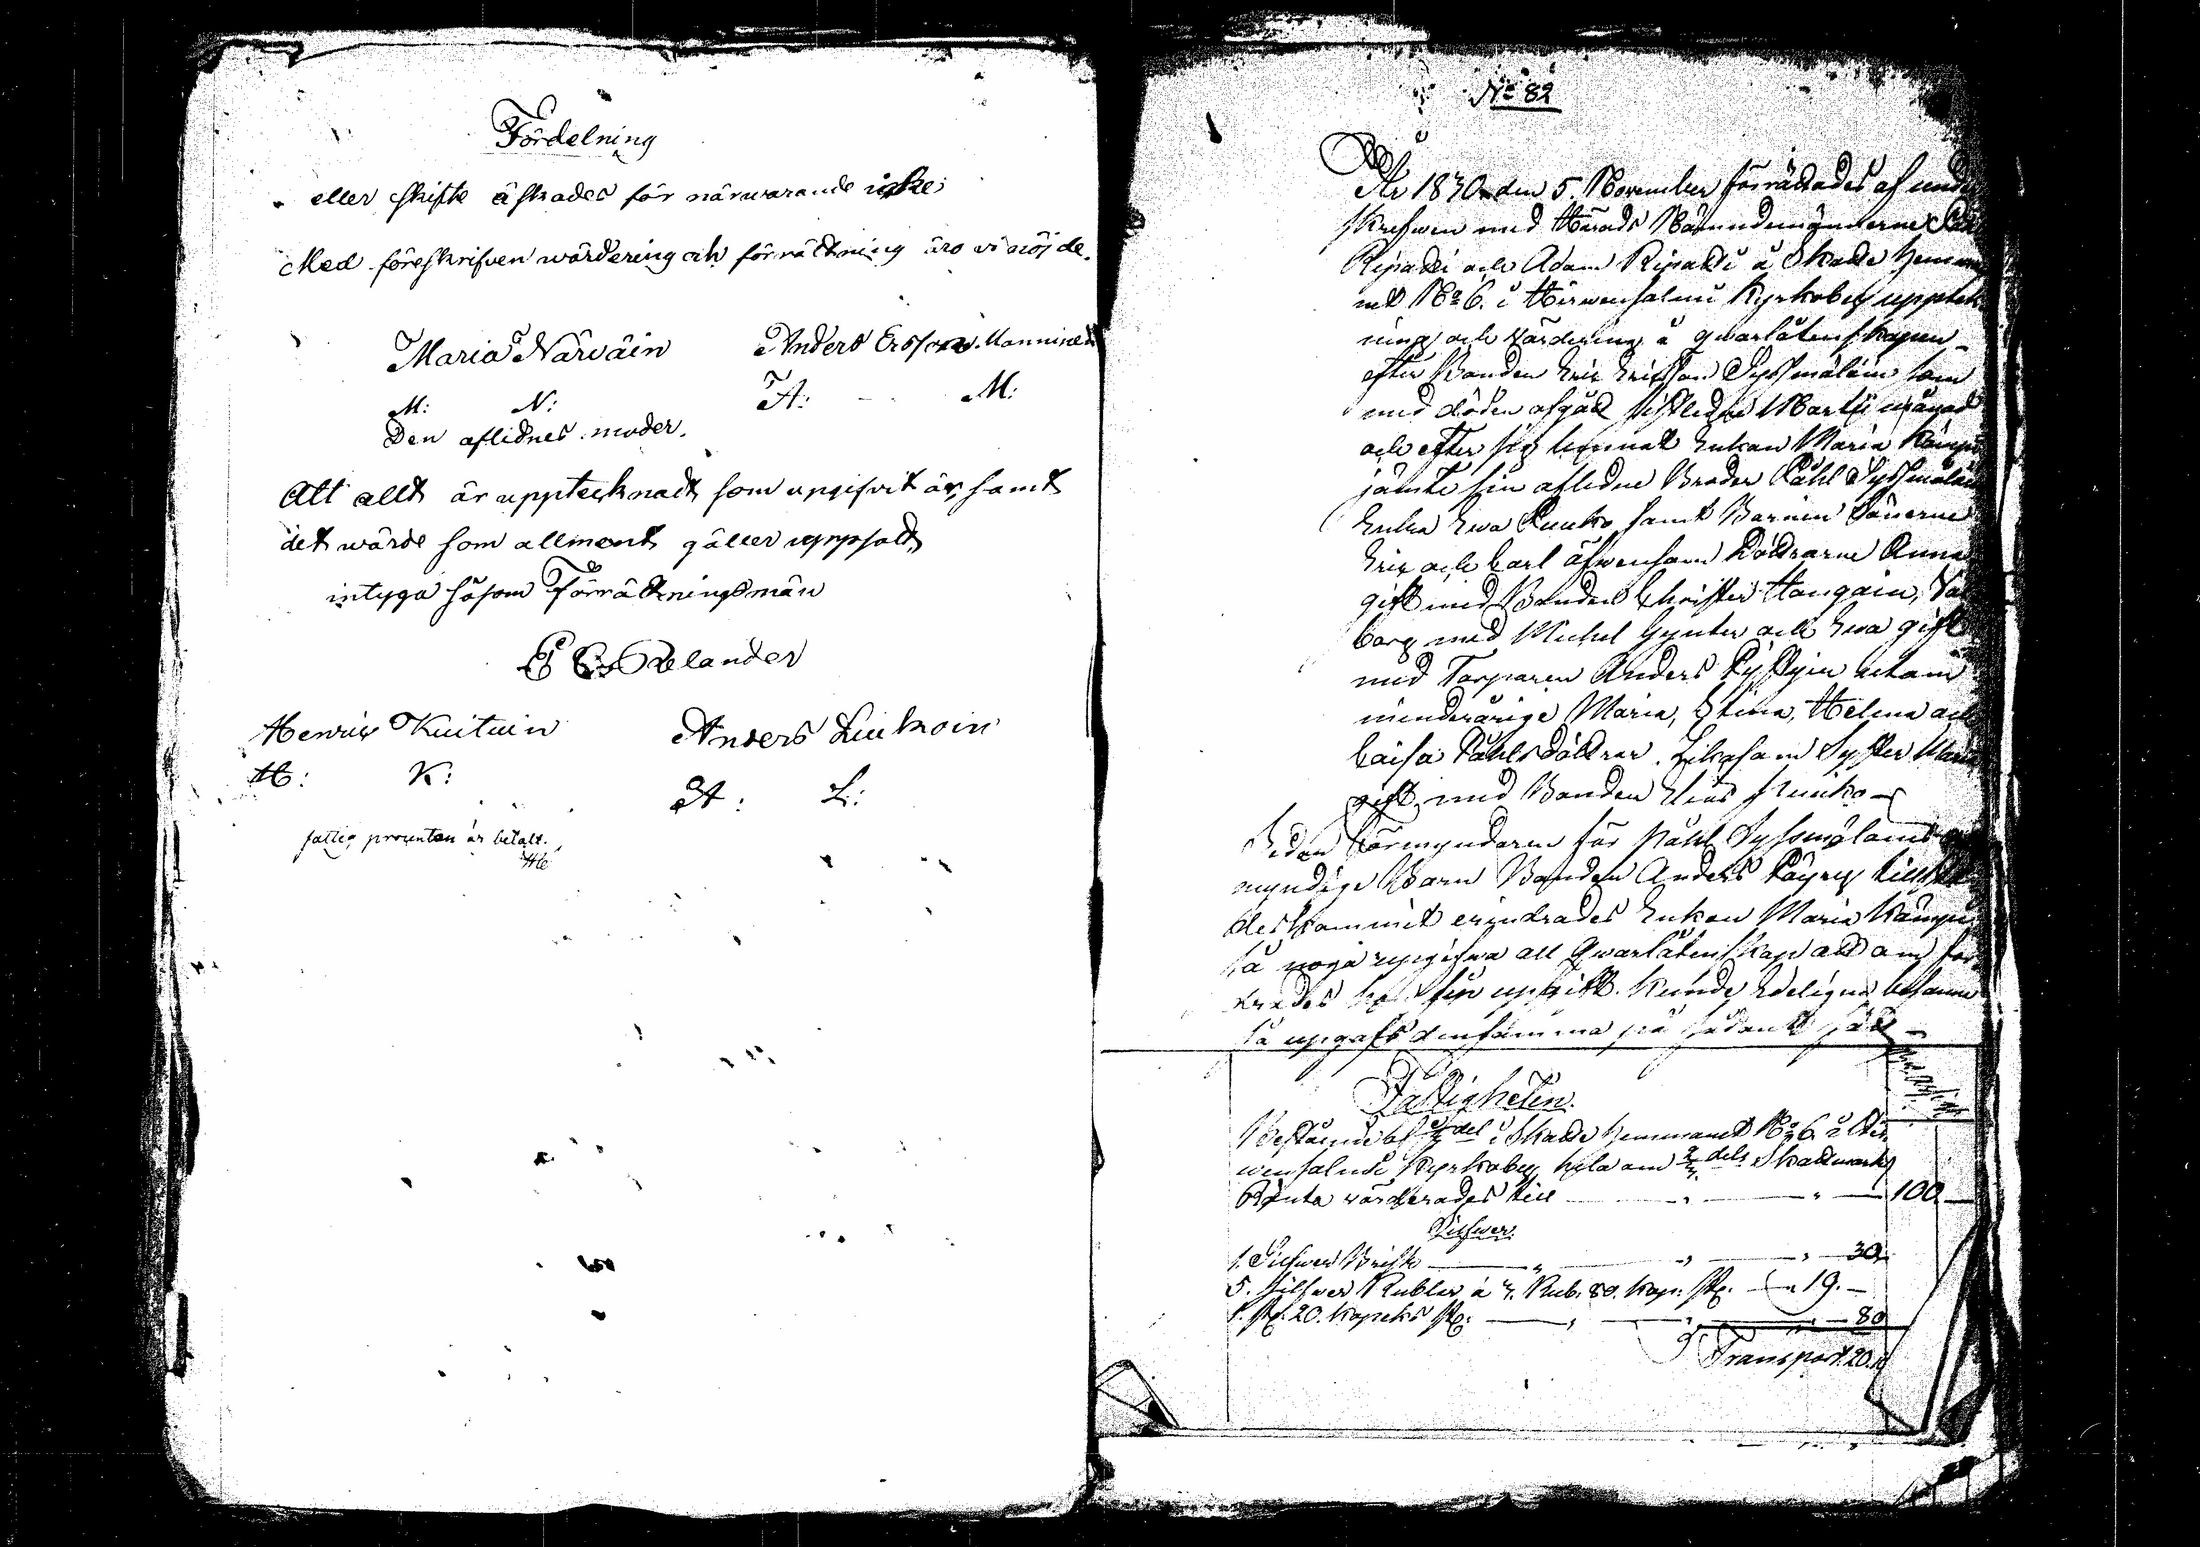 Fördelning
eller skifte äskades för närwarande icke
Med föreskrifven wärdering och förrättning äro vi nöjde.
Maria Närväin Anders Ersson Manninen
M: N: A: M:
Den aflidnes moder.
Att allt är upptecknadt som upgifvit är, samt
det wärde som allment gäller uppsatt,
intyga såsom Förrättningsmän
Relander
Henric Kuituin Anders Liukoin
H: K: A: L:
fattig procenten är betalt.
No 82
År 1830 den 5 November förrättades af under
skrefwen med Härads Nämndemännerne
Ripatti och Adam Ripatti å Skatte Hemma
net No 6. i Hirwensalmi Kyrkoby upptek
ning och värdering å qvarlåtenskapen
efter Bonden Eric Ericsson Syssmäläin som
med döden afgått sistledne Martii månad
och efter sig lemnat Enkan Maria
jämte sin aflidne Broder Påhl Syssmäläin
Enka Ewa Ruuko samt Barnen Sönerne
Eric och Carl äfwensom Döttrarne Anna
gift med Bonden Christer Haugain,
borg med Michel Gynter och Ewa gift
med Torparen Anders Pystyin utom
minderårige Maria, Stina, Helena och
Caisa Påhlsdöttrar. Likasom Syster Maria
gift med Bonden
Sedan Förmyndaren för Påhl Syssmäläins
myndige Barn Bonden Anders Päyry
destkommit erindrades Enkan Maria
så noga upgifwa all Qwarlåtenskap att om for
drades hon sin upgift kunde Edeligen
så upgafs densamma på sådant sätt
Fastigheten.
Bestående af del i Skatte Hemmanet No 6 i Hir
wensalmi Kyrkoby hela om dels Skattmark
Ränta värderades till 100
Silfwer.
1. Silfwer Brisk 30
5. Silfwer Rubler à 3. Rub. 80. Kop: st. 19.
1. st. 20. Kopeks st. 80
Transport. 20.